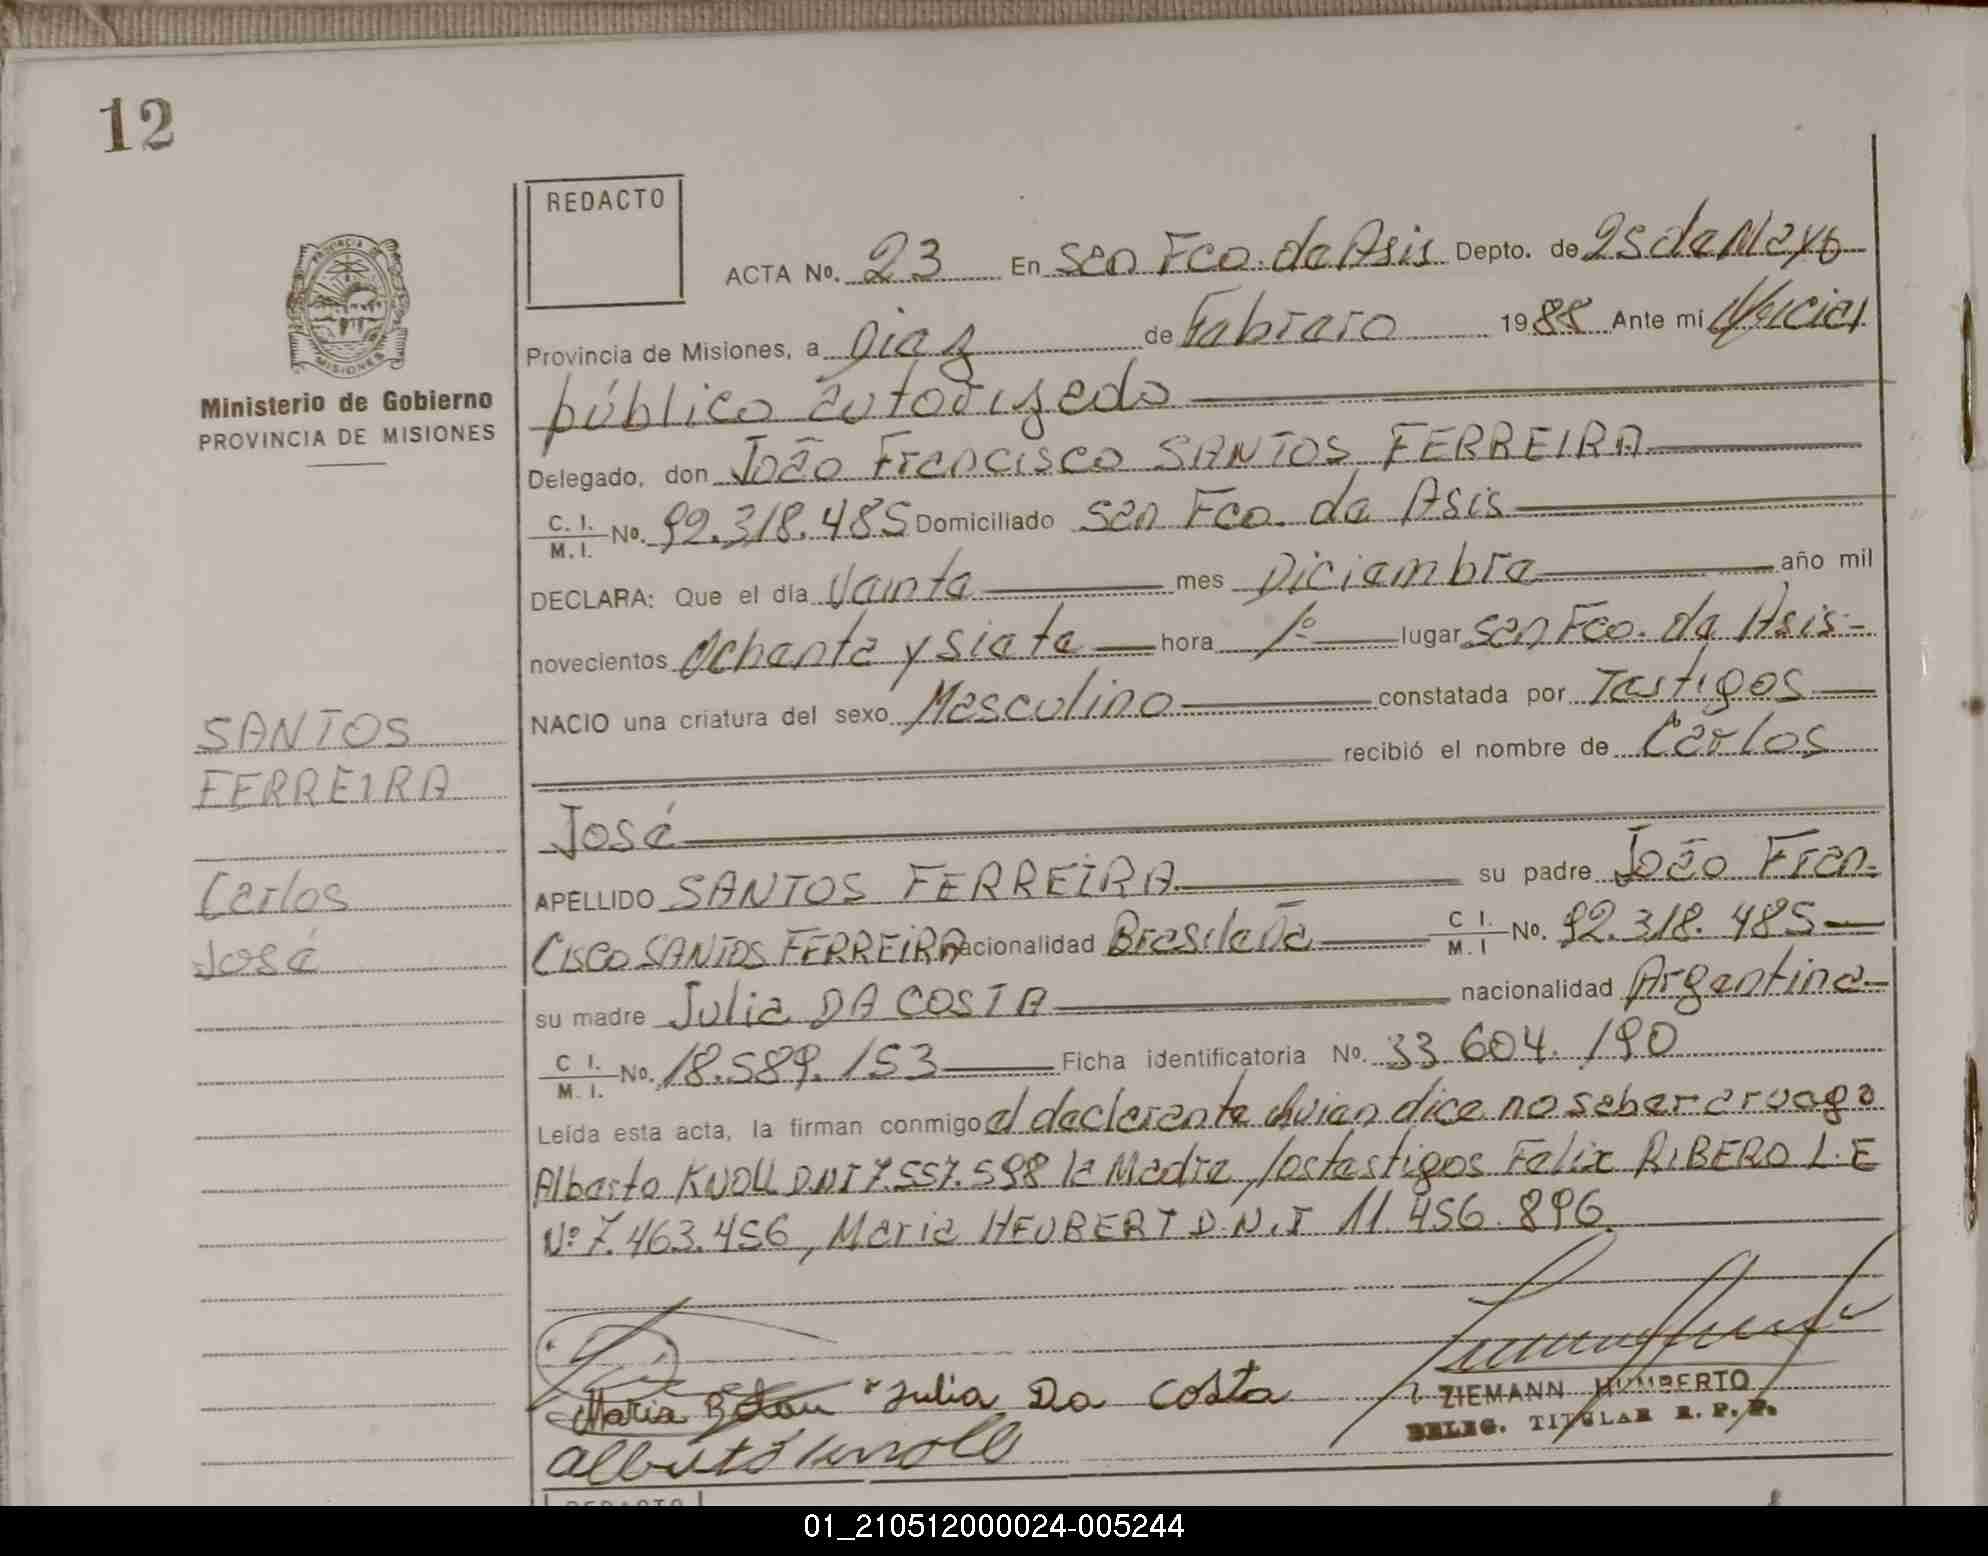 12
REDACTO
ACTA No. 23 En San Fco. de Asis Depto. de 25 de Mayo
Provincia de Misiones, a Diez de Febrero 1988 Ante mí Oficial
público autorizado
Ministerio de Gobierno
PROVINCIA DE MISIONES
Delegado, don João Francisco SANTOS FERREIRA
C. I. / M. I. No. 92.318.485 Domiciliado San Fco. de Asis
DECLARA: Que el día Veinte mes Diciembre año mil
novecientos Ochenta y siete hora 1º lugar San Fco. de Asis-
NACIO una criatura del sexo Masculino constatada por Testigos
recibió el nombre de Carlos
José
SANTOS
FERREIRA
Carlos
José
APELLIDO SANTOS FERREIRA su padre João Fran-
cisco SANTOS FERREIRA nacionalidad Brasileña C I. / M. I No. 92.318.485
su madre Julia DA COSTA nacionalidad Argentina
C I. / M. I. No. 18.589.153 Ficha identificatoria No. 33.604.190
Leída esta acta, la firman conmigo el declarante quien dice no saber a ruego
Alberto KNOLL D.N.I 7.557.598 la Madre, los testigos Felix RIBERO L.E
Nº 7.463.456, Maria HEUBERT D.N.I 11.456.896
Maria
Julia Da Costa
ZIEMANN HUMBERTO
DELEG. TITULAR R. P. P.
Alberto Knoll
REDACTO
01_210512000024-005244